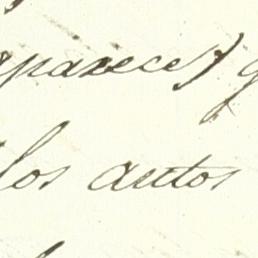 aparece) q
los autos